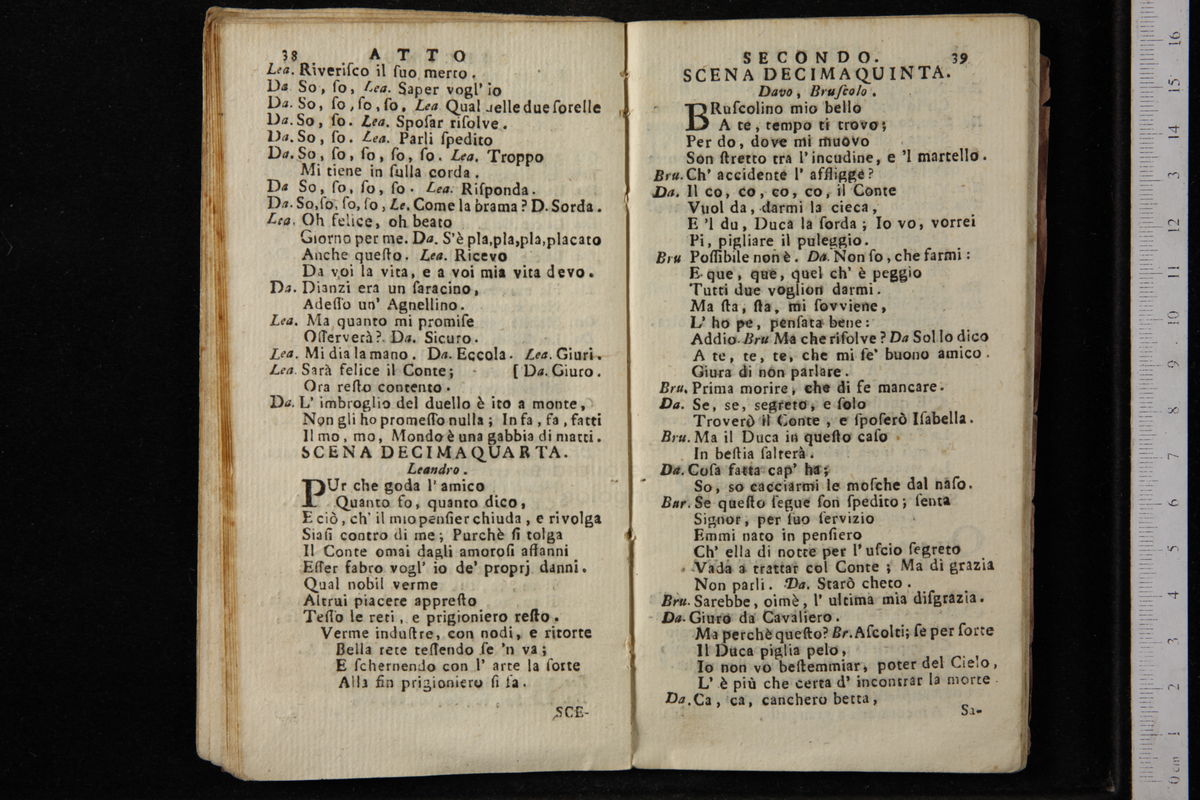 38 ATTO
Lea. Riveriſco il ſuo merto.
Da. So, ſo, Lea. Saper vogl' io
Da. So, ſo, ſo, ſo. Lea Qual delle due ſorelle
Da. So, ſo. Lea. Spoſar riſolve.
Da. So, ſo. Lea. Parli ſpedito
Da. So, ſo, ſo, ſo, ſo. Lea. Troppo
Mi tiene in ſulla corda.
Da So, ſo, ſo, ſo. Lea. Riſponda.
Da. So, ſo, ſo, ſo, Le. Come la brama? D. Sorda.
Lea. Oh felice, oh beato
Giorno per me. Da. S'è pla, pla, pla, placato
Anche queſto. Lea. Ricevo
Da voi la vita, e a voi mia vita devo.
Da. Dianzi era un ſaracino,
Adeſſo un' Agnellino.
Lea. Ma quanto mi promiſe
Oſſerverà? Da. Sicuro.
Lea. Mi dia la mano. Da. Eccola. Lea. Giuri.
Lea. Sarà felice il Conte; [ Da. Giuro.
Ora reſto contento.
Da. L' imbroglio del duello è ito a monte,
Non gli ho promeſſo nulla; In fa, fa, fatti
Il mo, mo, Mondo è una gabbia di matti.
SCENA DECIMAQUARTA.
Leandro.
PUr che goda l' amico
Quanto fo, quanto dico,
E ciò, ch' il mio penſier chiuda, e rivolga
Siaſi contro di me; Purchè ſi tolga
Il Conte omai dagli amoroſi affanni
Eſſer fabro vogl' io de' proprj danni.
Qual nobil verme
Altrui piacere appreſto
Teſſo le reti, e prigioniero reſto.
Verme induſtre, con nodi, e ritorte
Bella rete teſſendo ſe 'n va;
E ſchernendo con l' arte la ſorte
Alla fin prigioniero ſi fa.
SCE-
SECONDO. 39
SCENA DECIMAQUINTA.
Davo, Bruſcolo.
BRuſcolino mio bello
A te, tempo ti trovo;
Per do, dove mi muovo
Son ſtretto tra l' incudine, e 'l martello.
Bru. Ch' accidente l' affligge?
Da. Il co, co, co, co, il Conte
Vuol da, darmi la cieca,
E 'l du, Duca la ſorda; Io vo, vorrei
Pi, pigliare il puleggio.
Bru Poſſibile non è. Da. Non ſo, che farmi:
E que, que, quel ch' è peggio
Tutti due voglion darmi.
Ma ſta, ſta, mi ſovviene,
L' ho pe, penſata bene:
Addio. Bru Ma che riſolve? Da Sol lo dico
A te, te, te, che mi ſe' buono amico.
Giura di non parlare.
Bru. Prima morire, che di fe mancare.
Da. Se, ſe, ſegreto, e ſolo
Troverò il Conte, e ſpoſerò Iſabella.
Bru. Ma il Duca in queſto caſo
In beſtia ſalterà.
Da. Coſa fatta cap' ha;
So, ſo cacciarmi le moſche dal naſo.
Bur. Se queſto ſegue ſon ſpedito; ſenta
Signor, per ſuo ſervizio
Emmi nato in penſiero
Ch' ella di notte per l' uſcio ſegreto
Vada a trattar col Conte; Ma di grazia
Non parli. Da. Starò cheto.
Bru. Sarebbe, oimè, l' ultima mia diſgrazia.
Da. Giuro da Cavaliero.
Ma perchè queſto? Br. Aſcolti; ſe per ſorte
Il Duca piglia pelo,
Io non vo beſtemmiar, poter del Cielo,
L' è più che certa d' incontrar la morte.
Da. Ca, ca, canchero betta,
Sa-